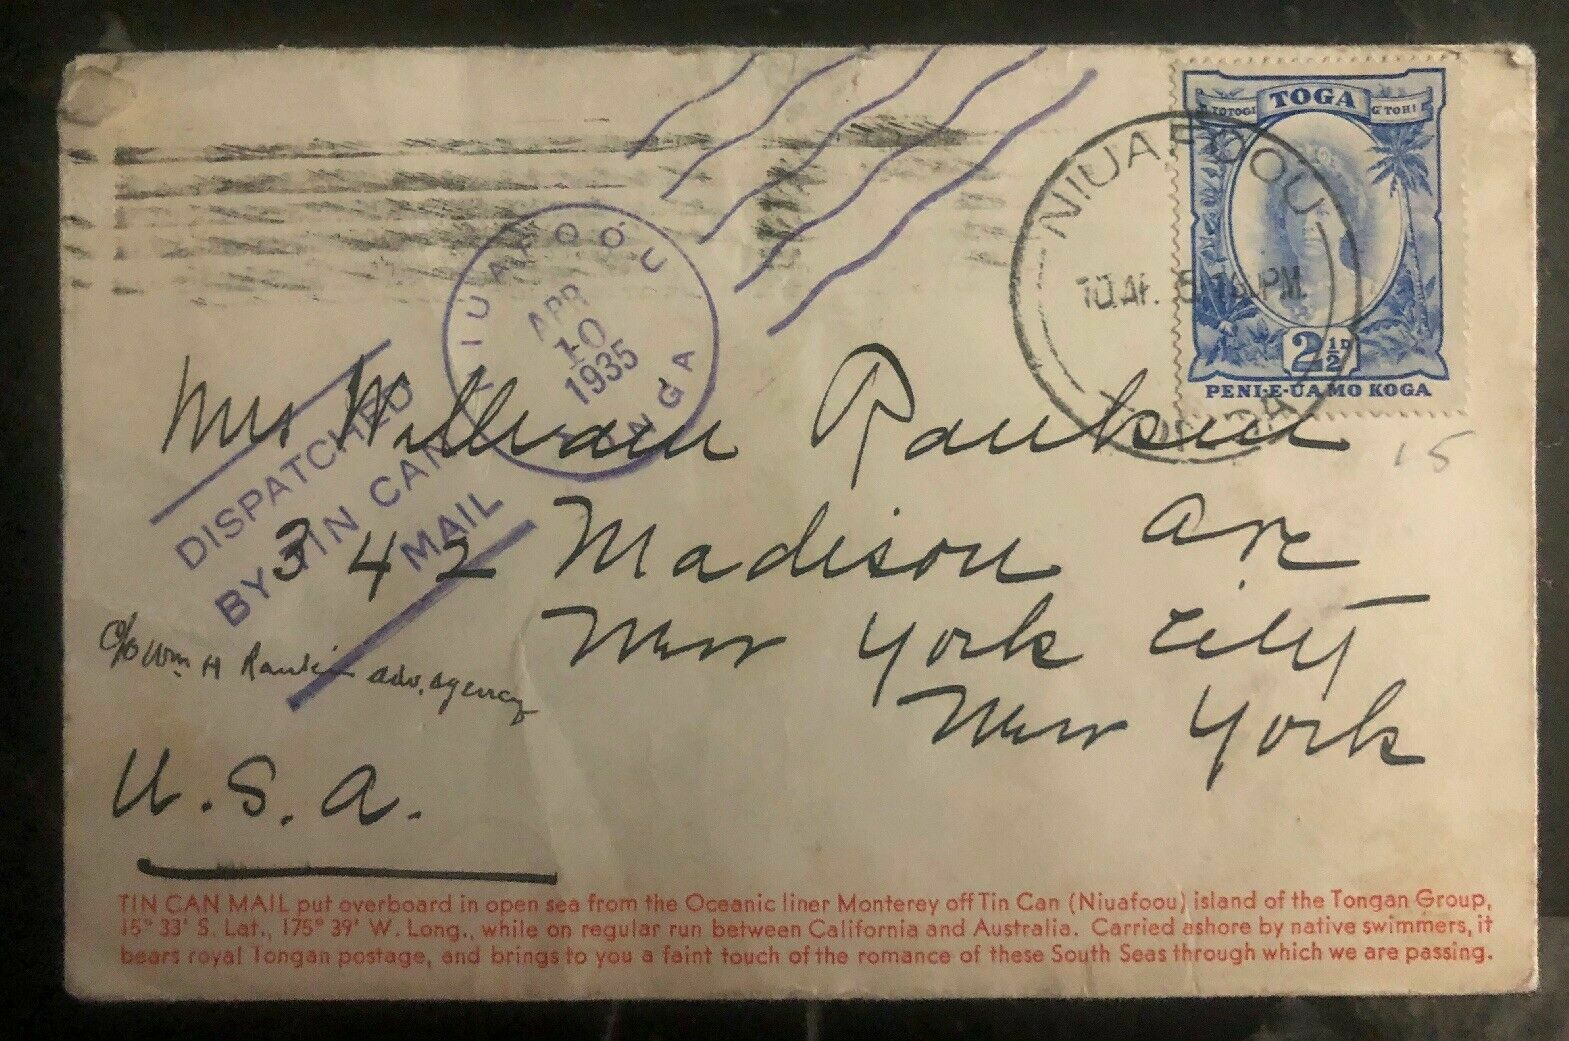 TOTOGI TOGA G'TOHI
2½D
PENI-E-UA MO KOGA
NIUAFOOU
TONGA
NIUAFOOU
APR
10
1935
TONGA
DISPATCHED
BY TIN CAN
MAIL
Mrs William Rankin
342 Madison Ave
New York City
New York
c/o Wm H Rankin adv. agency
U.S.A.
15
TIN CAN MAIL put overboard in open sea from the Oceanic liner Monterey off Tin Can (Niuafoou) island of the Tongan Group,
15° 33' S. Lat., 175° 39' W. Long., while on regular run between California and Australia. Carried ashore by native swimmers, it
bears royal Tongan postage, and brings to you a faint touch of the romance of these South Seas through which we are passing.